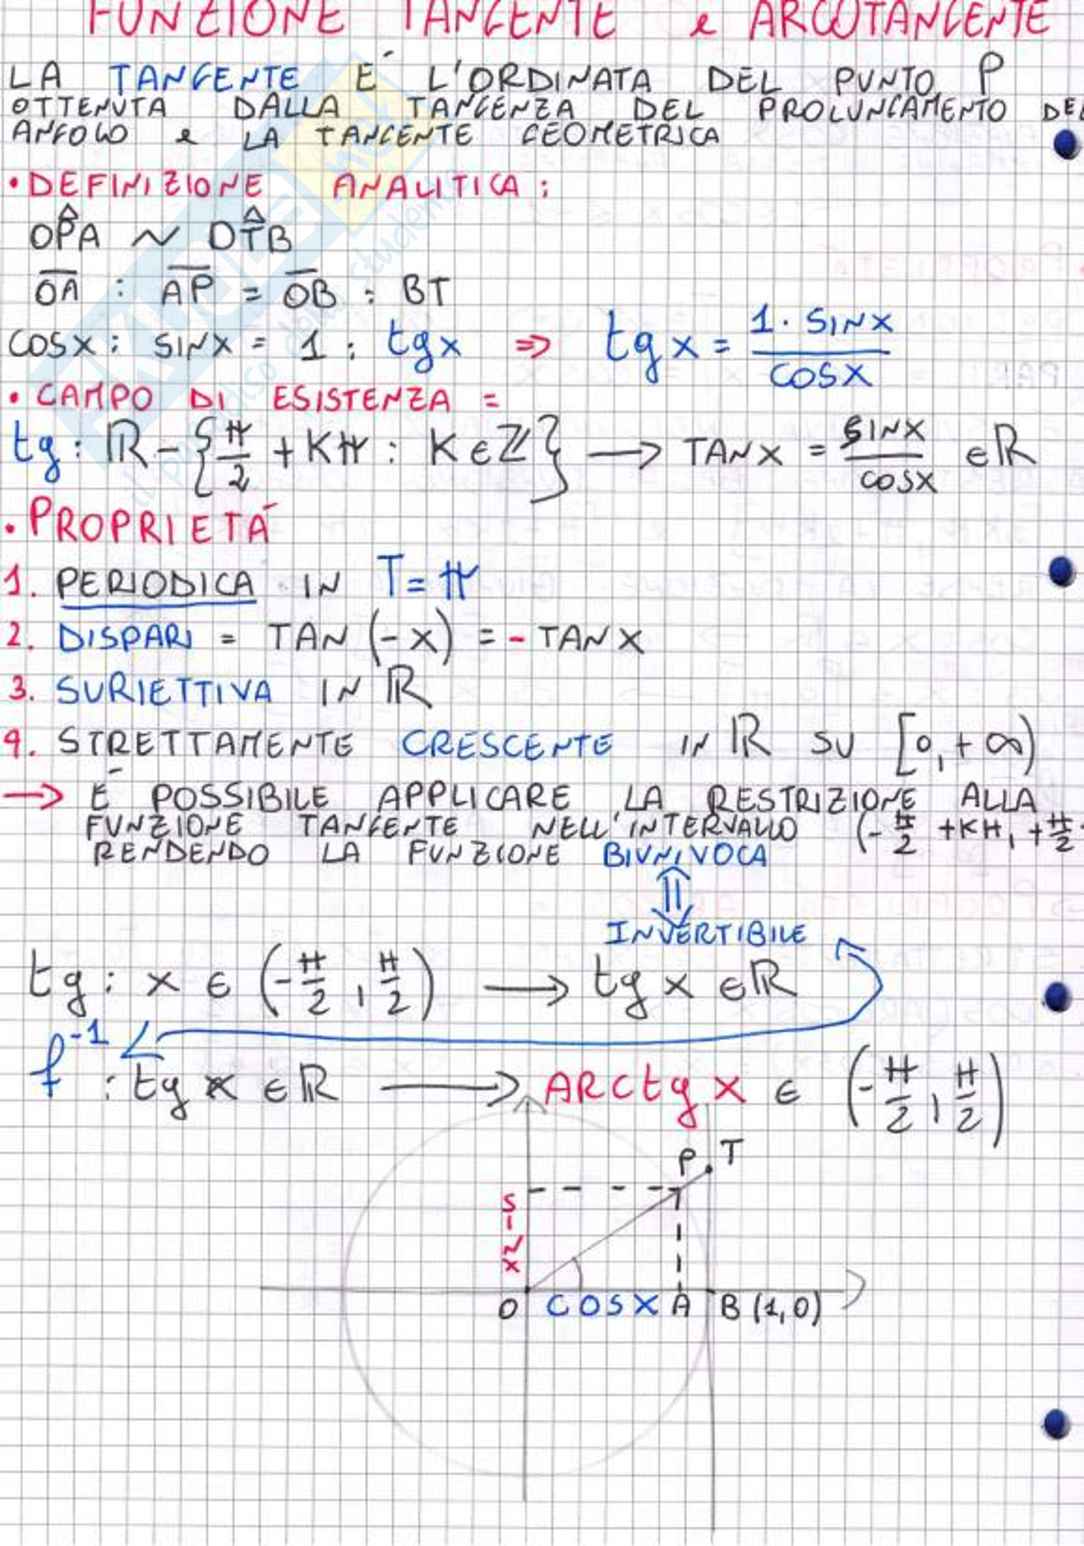 FUNZIONE TANGENTE e ARCOTANGENTE
LA TANGENTE È L'ORDINATA DEL PUNTO P
OTTENUTA DALLA TANGENZA DEL PROLUNGAMENTO DEL
ANGOLO e LA TANGENTE GEOMETRICA
• DEFINIZIONE ANALITICA :
OP̂A ~ OT̂B
O̅A̅ : A̅P̅ = O̅B̅ : BT
COSX : SINX = 1 : tgx ⇒ tgx = 1 · SINX / COSX
• CAMPO DI ESISTENZA =
tg : ℝ - {π/2 + Kπ : K ∈ ℤ} → TANX = SINX / COSX ∈ ℝ
• PROPRIETÀ
1. PERIODICA IN T = π
2. DISPARI = TAN (-X) = - TANX
3. SURIETTIVA IN ℝ
4. STRETTAMENTE CRESCENTE IN ℝ SU [0, +∞)
→ È POSSIBILE APPLICARE LA RESTRIZIONE ALLA
FUNZIONE TANGENTE NELL'INTERVALLO (-π/2 + Kπ, +π/2
RENDENDO LA FUNZIONE BIUNIVOCA
⇕
INVERTIBILE
tg : x ∈ (-π/2, π/2) → tg x ∈ ℝ
f⁻¹ : tg x ∈ ℝ → ARCtg x ∈ (-π/2, π/2)
P T
SINX
O COSX A B (1,0)